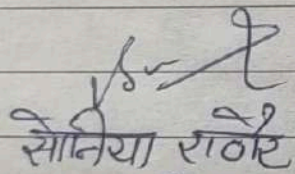 सोनिया राठौर